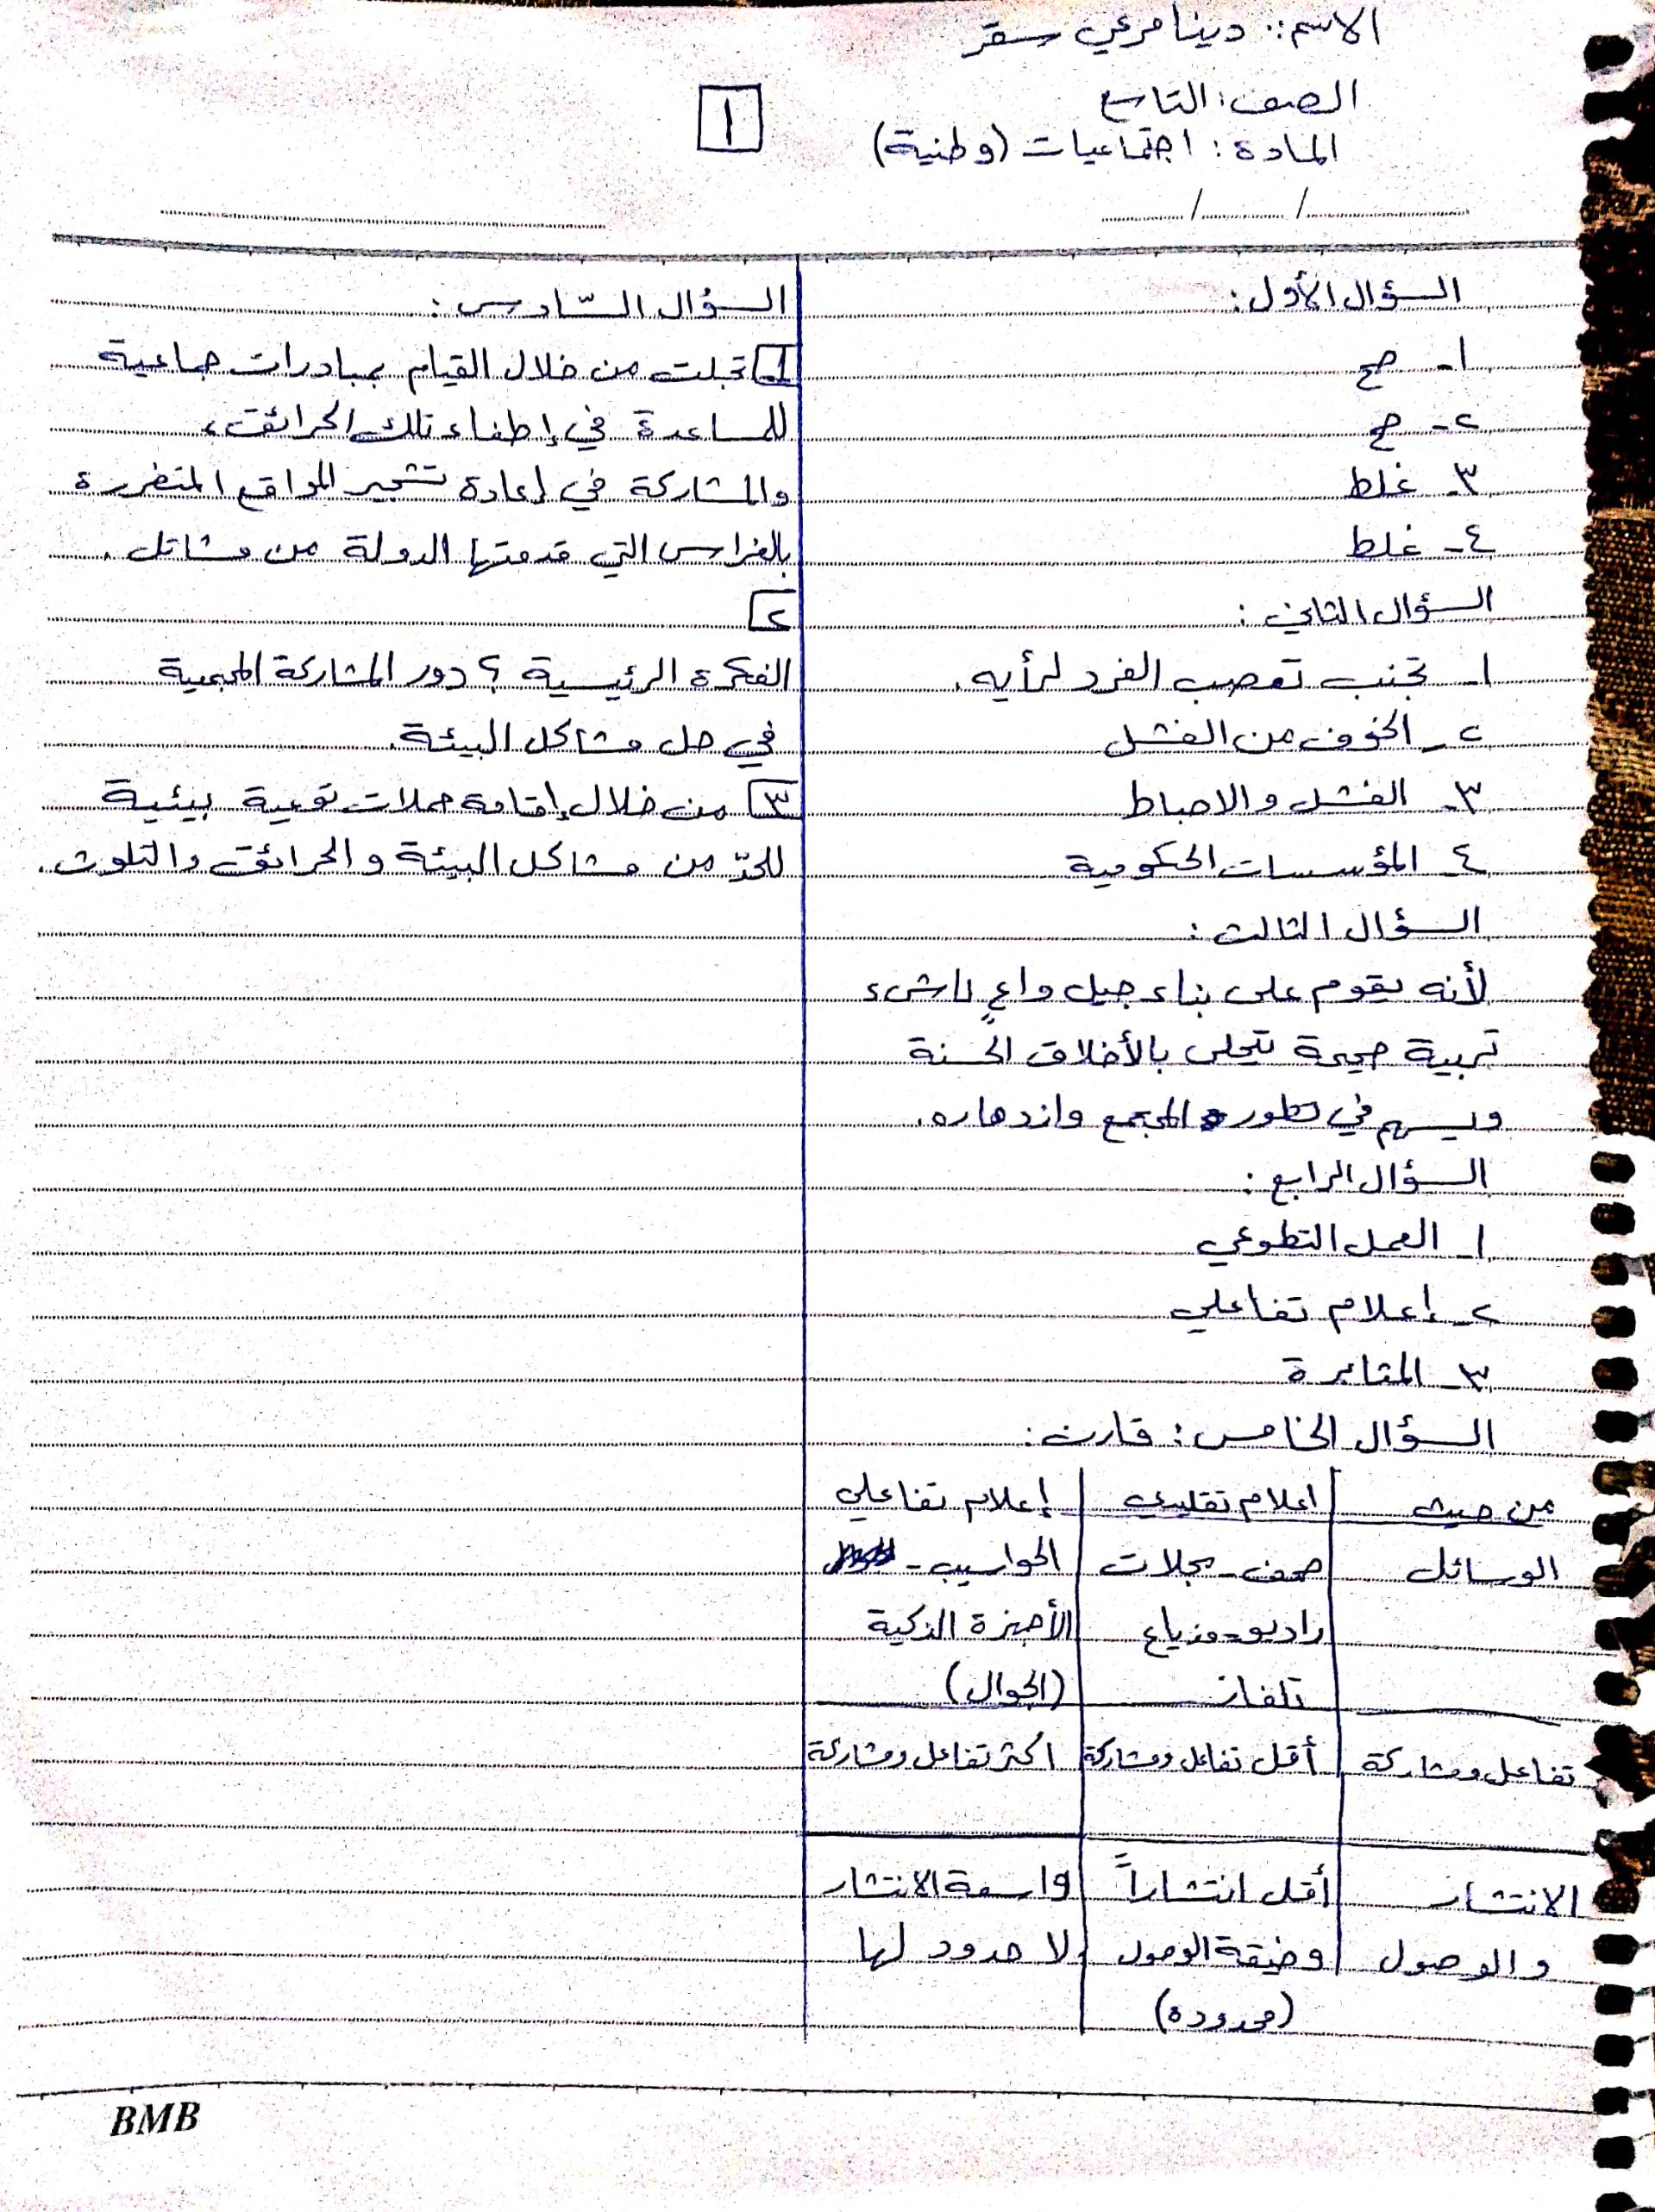 الاسم: دينا مرعي سقر
الصف: التاسع
المادة: اجتماعيات (وطنية)
١
السؤال الأول:
١- صح
٢- صح
٣- غلط
٤- غلط
السؤال الثاني:
١- تجنب تعصب الفرد لرأيه.
٢- الخوف من الفشل
٣- الفشل والاحباط
٤- المؤسسات الحكومية
السؤال الثالث:
لأنه يقوم على بناء جيل واعٍ ناشئ
تربية صحيحة تتحلى بالأخلاق الحسنة
ويسهم في تطور المجتمع وازدهاره.
السؤال الرابع:
١- العمل التطوعي
٢- إعلام تفاعلي
٣- المثابرة
السؤال الخامس: قارن:
من حيث | اعلام تقليدي | إعلام تفاعلي
الوسائل | صحف - مجلات | الحواسيب -
راديو - مذياع | الأجهزة الذكية
تلفاز | (الجوال)
تفاعل ومشاركة | أقل تفاعل ومشاركة | اكثر تفاعل ومشاركة
الانتشار | أقل انتشاراً | واسعة الانتشار
والوصول | وضيقة الوصول | لا حدود لها
(محدودة)
السؤال السّادس:
١ تجلت من خلال القيام بمبادرات جماعية
للمساعدة في إطفاء تلك الحرائق،
والمشاركة في إعادة تشجير المواقع المتضررة
بالغراس التي قدمتها الدولة من مشاتل.
٢
الفكرة الرئيسية ؟ دور المشاركة المجتمعية
في حل مشاكل البيئة.
٣ من خلال إقامة حملات توعية بيئية
للحدّ من مشاكل البيئة والحرائق والتلوث.
BMB